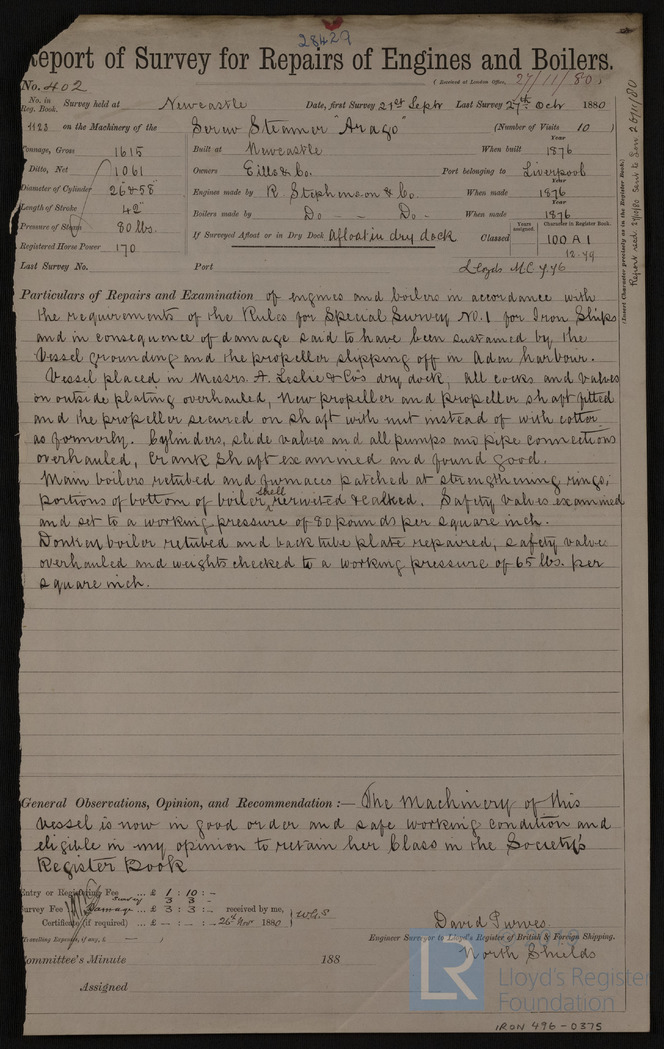 28427
Report of Survey for Repairs of Engines and Boilers.
No. 402 (Received at London Office, 27/11/80)
No. in Reg. Book. Survey held at Newcastle Date, first Survey 21st Septr Last Survey 27th Octr 1880
1123 on the Machinery of the Screw Steamer "Arago" (Number of Visits 10)
Tonnage, Gross 1615 Built at Newcastle When built Year 1876
Ditto, Net 1061 Owners Port belonging to Liverpool
Diameter of Cylinder 26 & 58" Engines made by R. Stephenson & Co. When made Year 1876
Length of Stroke 42" Boilers made by Do - - Do - When made Year 1876
Pressure of Steam 80 lbs. If Surveyed Afloat or in Dry Dock Afloat in dry dock Classed Years assigned. Character in Register Book. 100 A 1
Registered Horse Power 170 12.79
Last Survey No. Port Lloyds M.C. 7,76
(Insert Character precisely as in the Register Book.)
Report recd. 27/10/80 Sent to Lon 26/11/80
Particulars of Repairs and Examination of engines and boilers in accordance with
the requirements of the Rules for Special Survey No. 1 for Iron Ships
and in consequence of damage said to have been sustained by the
Vessel grounding and the propeller slipping off in Aden harbour.
Vessel placed in Messrs. A. Leslie & Co's dry dock, all cocks and valves
on outside plating overhauled, New propeller and propeller shaft fitted
and the propeller secured on shaft with nut instead of with cotter
as formerly. Cylinders, slide valves and all pumps and pipe connections
overhauled, Crank Shaft examined and found good.
Main boilers retubed and furnaces patched at strengthening rings,
portions of bottom of boiler shell rerivited & calked. Safety valves examined
and set to a working pressure of 80 pounds per square inch.
Donkey boiler retubed and back tube plate repaired, safety valve
overhauled and weights checked to a working pressure of 65 lbs. per
square inch.
General Observations, Opinion, and Recommendation :— The Machinery of this
Vessel is now in good order and safe working condition and
eligible in my opinion to retain her Class in the Society's
Register Book
Entry or Registering Fee ... £ 1 : 10 : -
Survey 3 3 -
Survey Fee Damage ... £ 3 : 3 : - received by me,
Certificate (if required) ... £ - : - : - 26th Nov 1880 W.G.S
(Travelling Expenses, if any, £ — )
David Purves.
Engineer Surveyor to Lloyd's Register of British & Foreign Shipping.
North Shields
Committee's Minute 188
Assigned
LR Lloyd's Register Foundation
IRON 496-0375